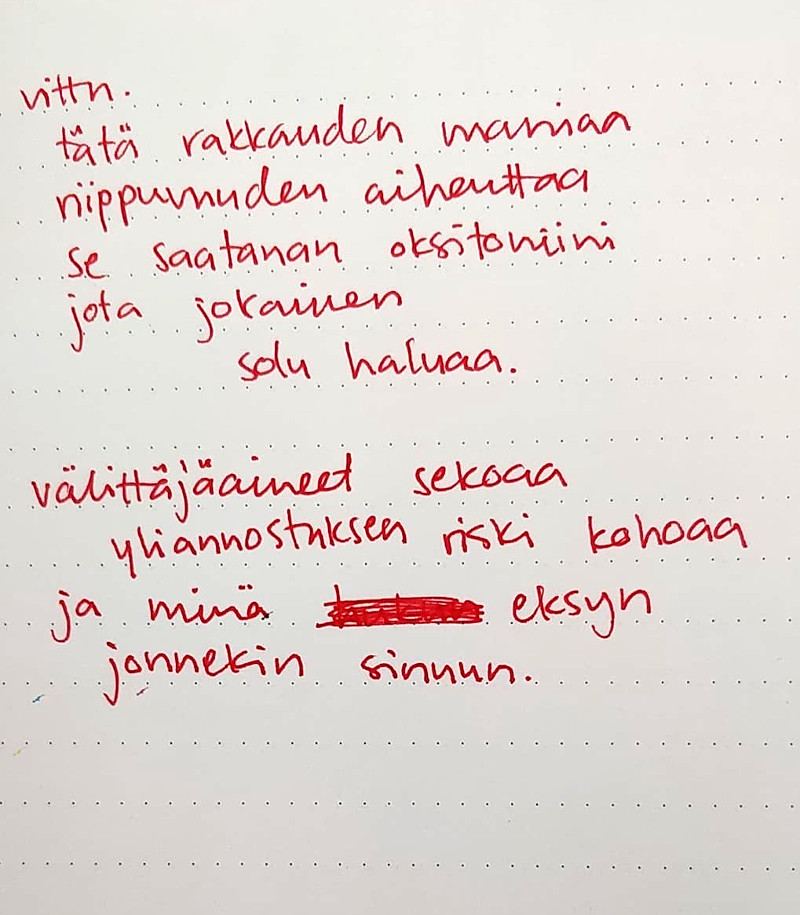 vittu.
tätä rakkauden maniaa
riippuvuuden aiheuttaa
se saatanan oksitoniini
jota jokainen
solu haluaa.
välittäjäaineet sekoaa
yliannostuksen riski kohoaa
ja minä eksyn
jonnekin sinuun.